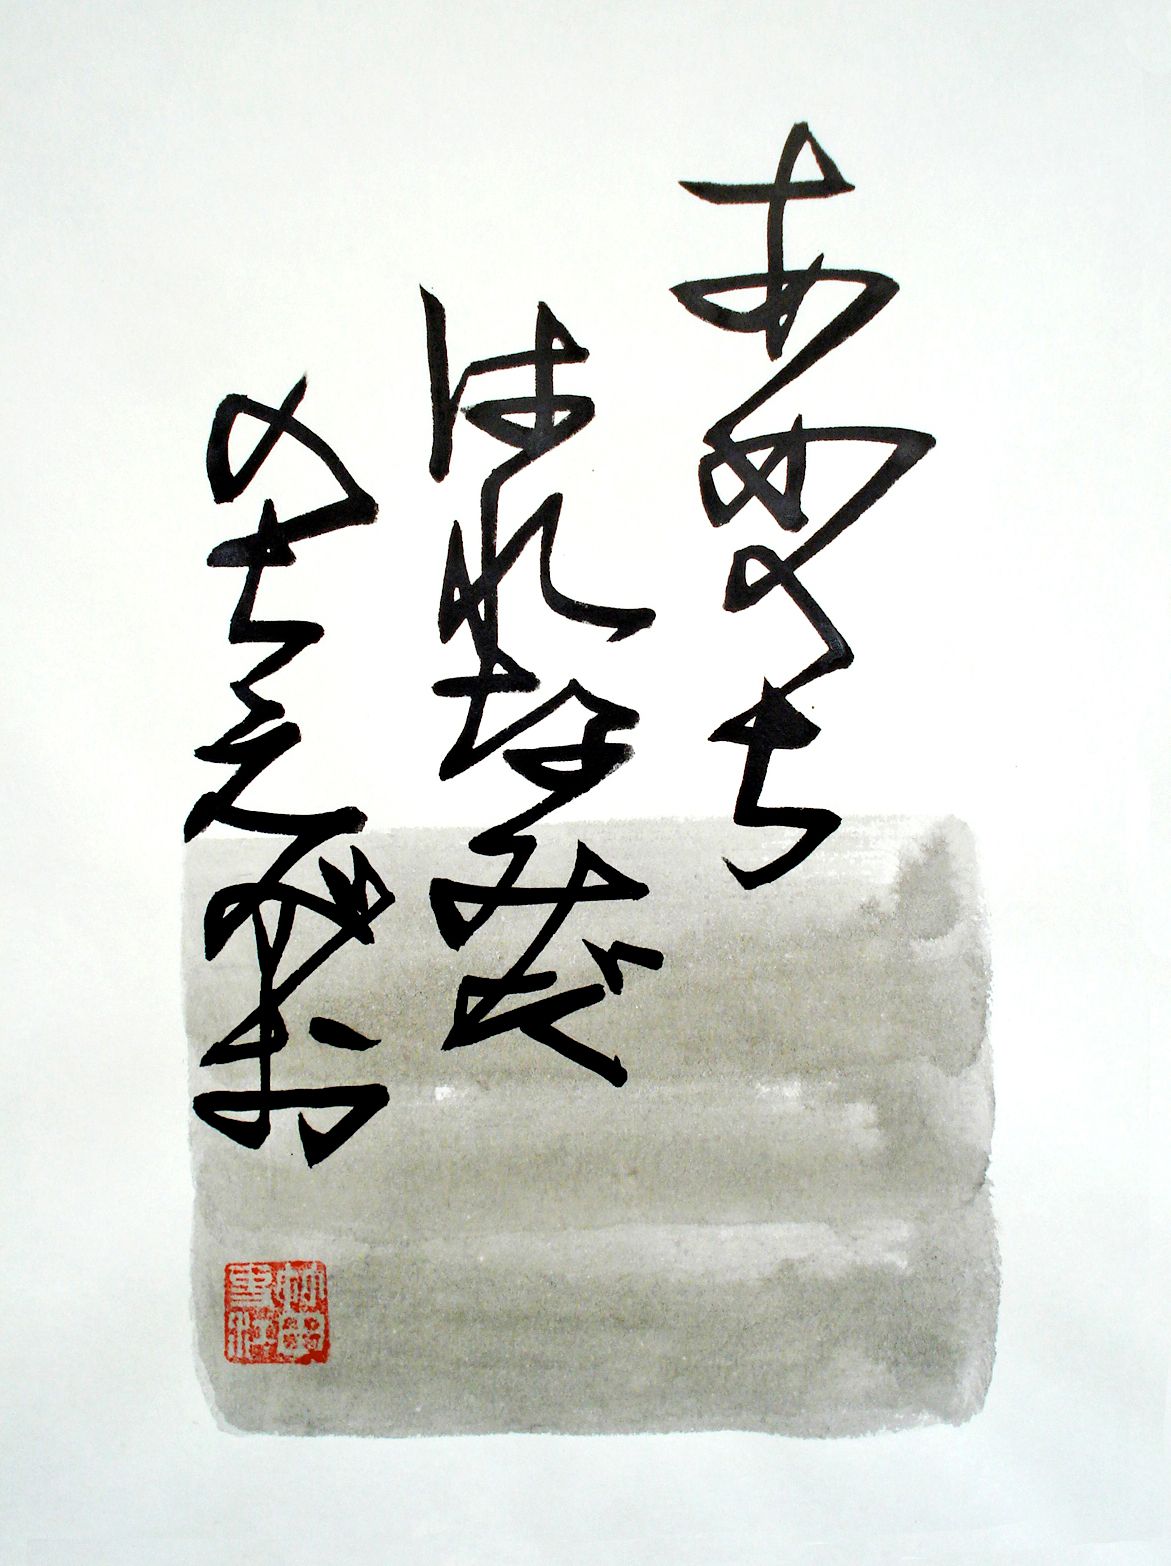 あめのち
はれなみだ
のちえがお